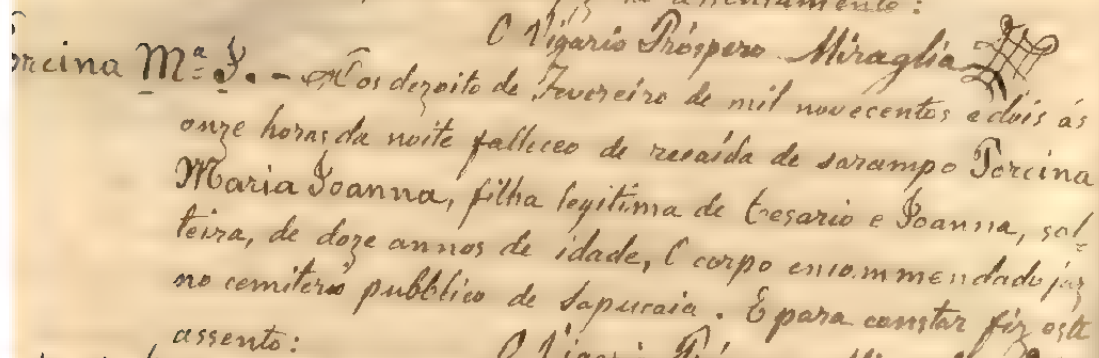 fiz no assentamento:
O Vigario Próspero Miraglia
Porcina Mª J. - Aos dezoito de Fevereiro de mil novecentos e dois ás
onze horas da noite falleceo de recaída de sarampo Porcina
Maria Joanna, filha legitima de Cesario e Joanna, sol-
teira, de doze annos de idade, O corpo encommendado jaz
no cemiterio pubblico de Sapucaia. E para constar fiz este
assento:
O Vigario